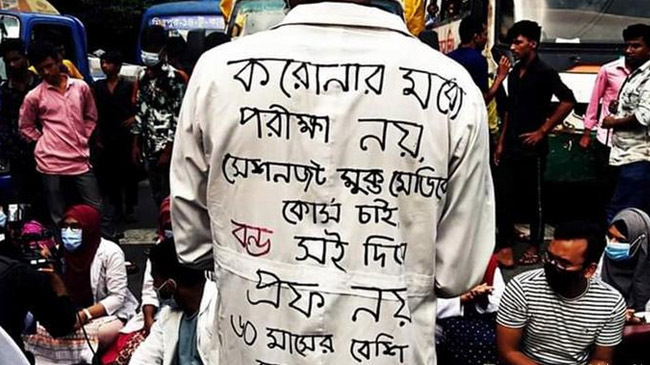 করোনার মধ্যে
পরীক্ষা নয়,
সেশনজট মুক্ত মেডিকে
কোর্স চাই,
বন্ড সই দিয়ে
প্রফ নয়
৬০ মাসের বেশি